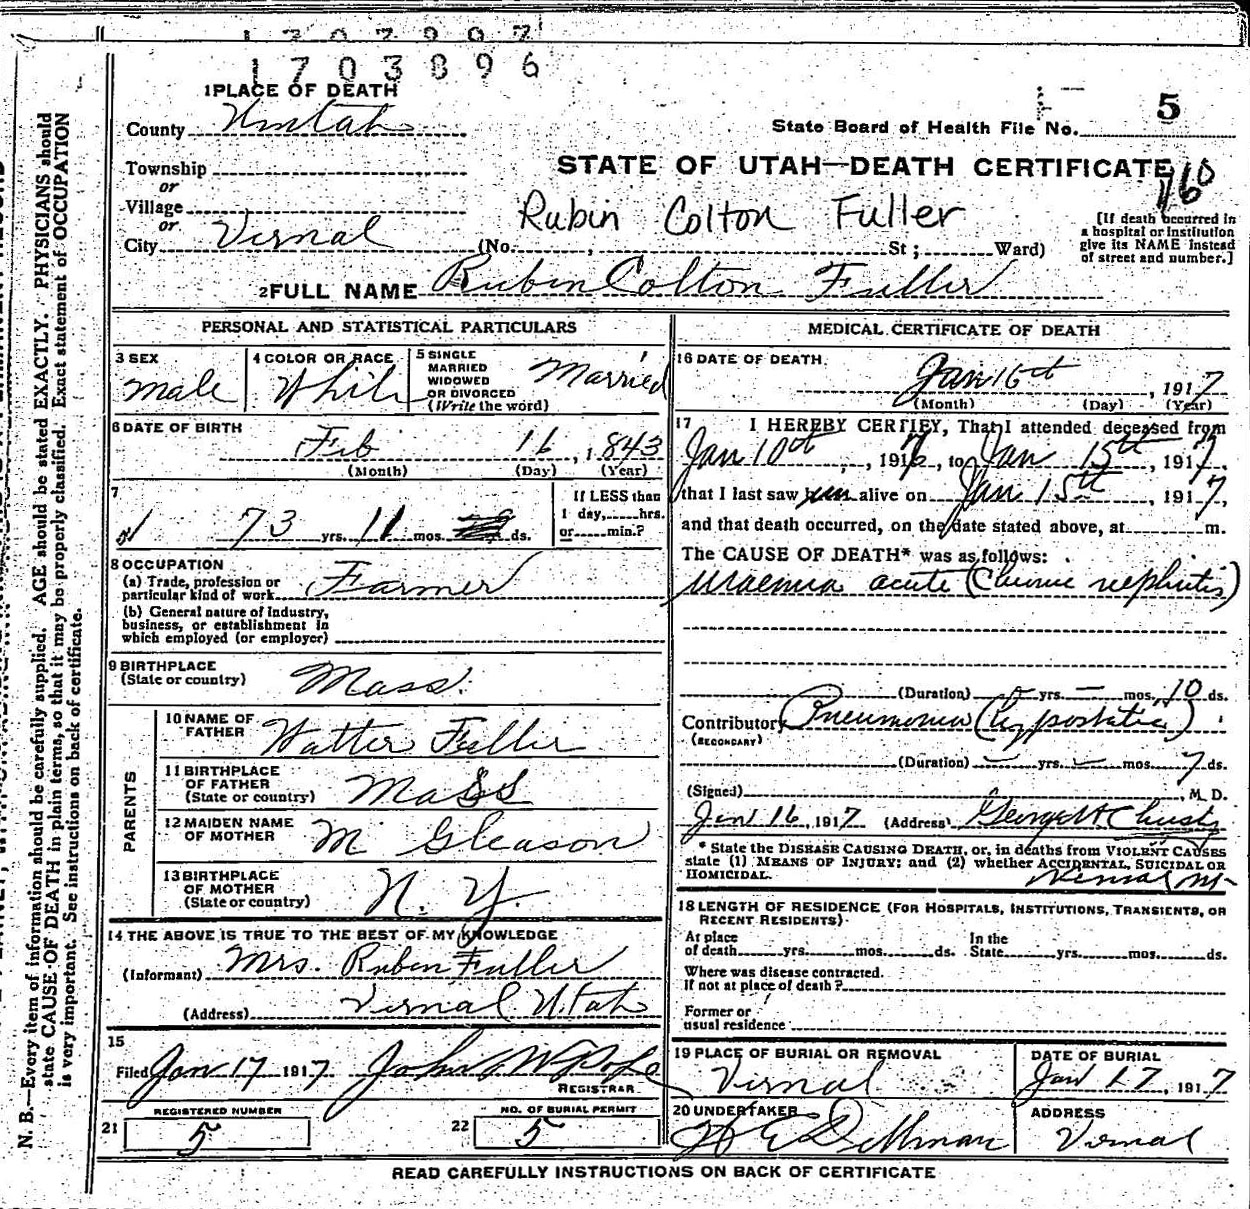 1703896
1 PLACE OF DEATH
County Uintah
State Board of Health File No. 5
Township
STATE OF UTAH—DEATH CERTIFICATE
or
Village
or
Rubin Colton Fuller
[If death occurred in a hospital or institution give its NAME instead of street and number.]
City Vernal (No. , St ; Ward)
2 FULL NAME Rubin Colton Fuller
PERSONAL AND STATISTICAL PARTICULARS
3 SEX
Male
4 COLOR OR RACE
White
5 SINGLE
MARRIED
WIDOWED
OR DIVORCED
(Write the word)
Married
6 DATE OF BIRTH
Feb 16, 1843
(Month) (Day) (Year)
7
73 yrs. 11 mos. ds.
If LESS than
1 day, hrs.
or min.?
8 OCCUPATION
(a) Trade, profession or
particular kind of work Farmer
(b) General nature of industry,
business, or establishment in
which employed (or employer)
9 BIRTHPLACE
(State or country) Mass.
PARENTS
10 NAME OF
FATHER Watter Fuller
11 BIRTHPLACE
OF FATHER
(State or country) Mass
12 MAIDEN NAME
OF MOTHER M Gleason
13 BIRTHPLACE
OF MOTHER
(State or country) N. Y.
14 THE ABOVE IS TRUE TO THE BEST OF MY KNOWLEDGE
(Informant) Mrs. Ruben Fuller
(Address) Vernal Utah
15
Filed Jan 17 1917 John
REGISTRAR
REGISTERED NUMBER
21 5
NO. OF BURIAL PERMIT
22 5
MEDICAL CERTIFICATE OF DEATH
16 DATE OF DEATH
Jan 16th, 1917
(Month) (Day) (Year)
17 I HEREBY CERTIFY, That I attended deceased from
Jan 10th, 1917, to Jan 15th, 1917,
that I last saw him alive on Jan 15th, 1917,
and that death occurred, on the date stated above, at m.
The CAUSE OF DEATH* was as follows:
uraemia acute (Chronic nephritis)
(Duration) yrs. — mos. 10 ds.
Contributory Pneumonia (hypostatic)
(SECONDARY)
(Duration) — yrs. — mos. 7 ds.
(Signed) , M. D.
Jan 16, 1917 (Address) George H Christy
* State the DISEASE CAUSING DEATH, or, in deaths from VIOLENT CAUSES
state (1) MEANS OF INJURY; and (2) whether ACCIDENTAL, SUICIDAL OR
HOMICIDAL.
Vernal Ut
18 LENGTH OF RESIDENCE (FOR HOSPITALS, INSTITUTIONS, TRANSIENTS, OR
RECENT RESIDENTS).
At place
of death yrs. mos. ds.
In the
State yrs. mos. ds.
Where was disease contracted.
If not at place of death?
Former or
usual residence
19 PLACE OF BURIAL OR REMOVAL
Vernal
DATE OF BURIAL
Jan 17, 1917
20 UNDERTAKER
ADDRESS
Vernal
READ CAREFULLY INSTRUCTIONS ON BACK OF CERTIFICATE
N. B.—Every item of information should be carefully supplied. AGE should be stated EXACTLY. PHYSICIANS should
state CAUSE OF DEATH in plain terms, so that it may be properly classified. Exact statement of OCCUPATION
is very important. See instructions on back of certificate.